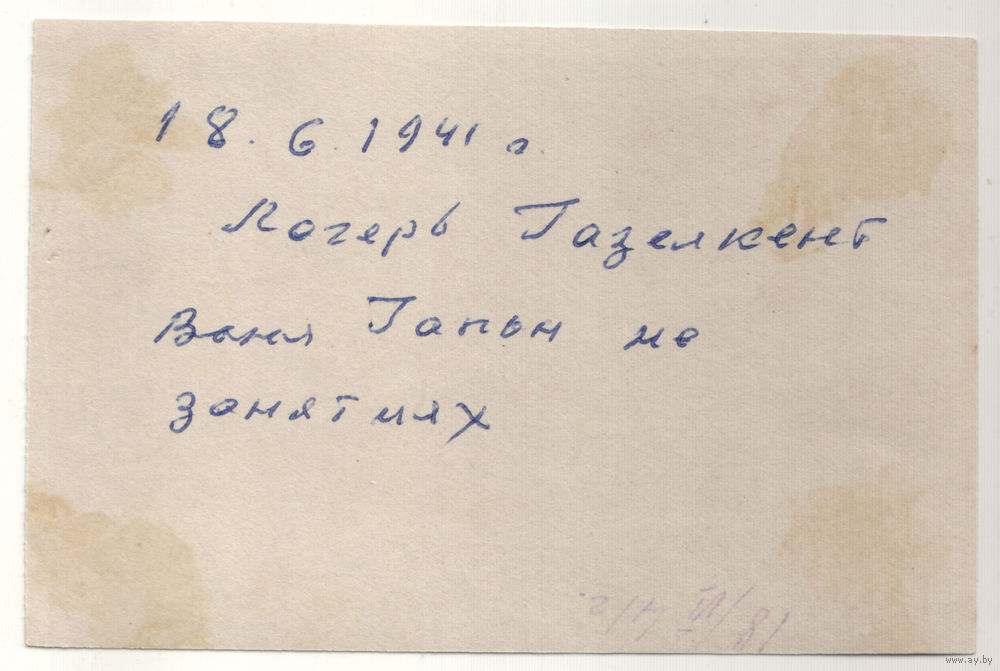 18.6.1941 г.
Лагерь Газелкент
Ваня Гапон на
занятиях
18/VI 41г.
www.ay.by